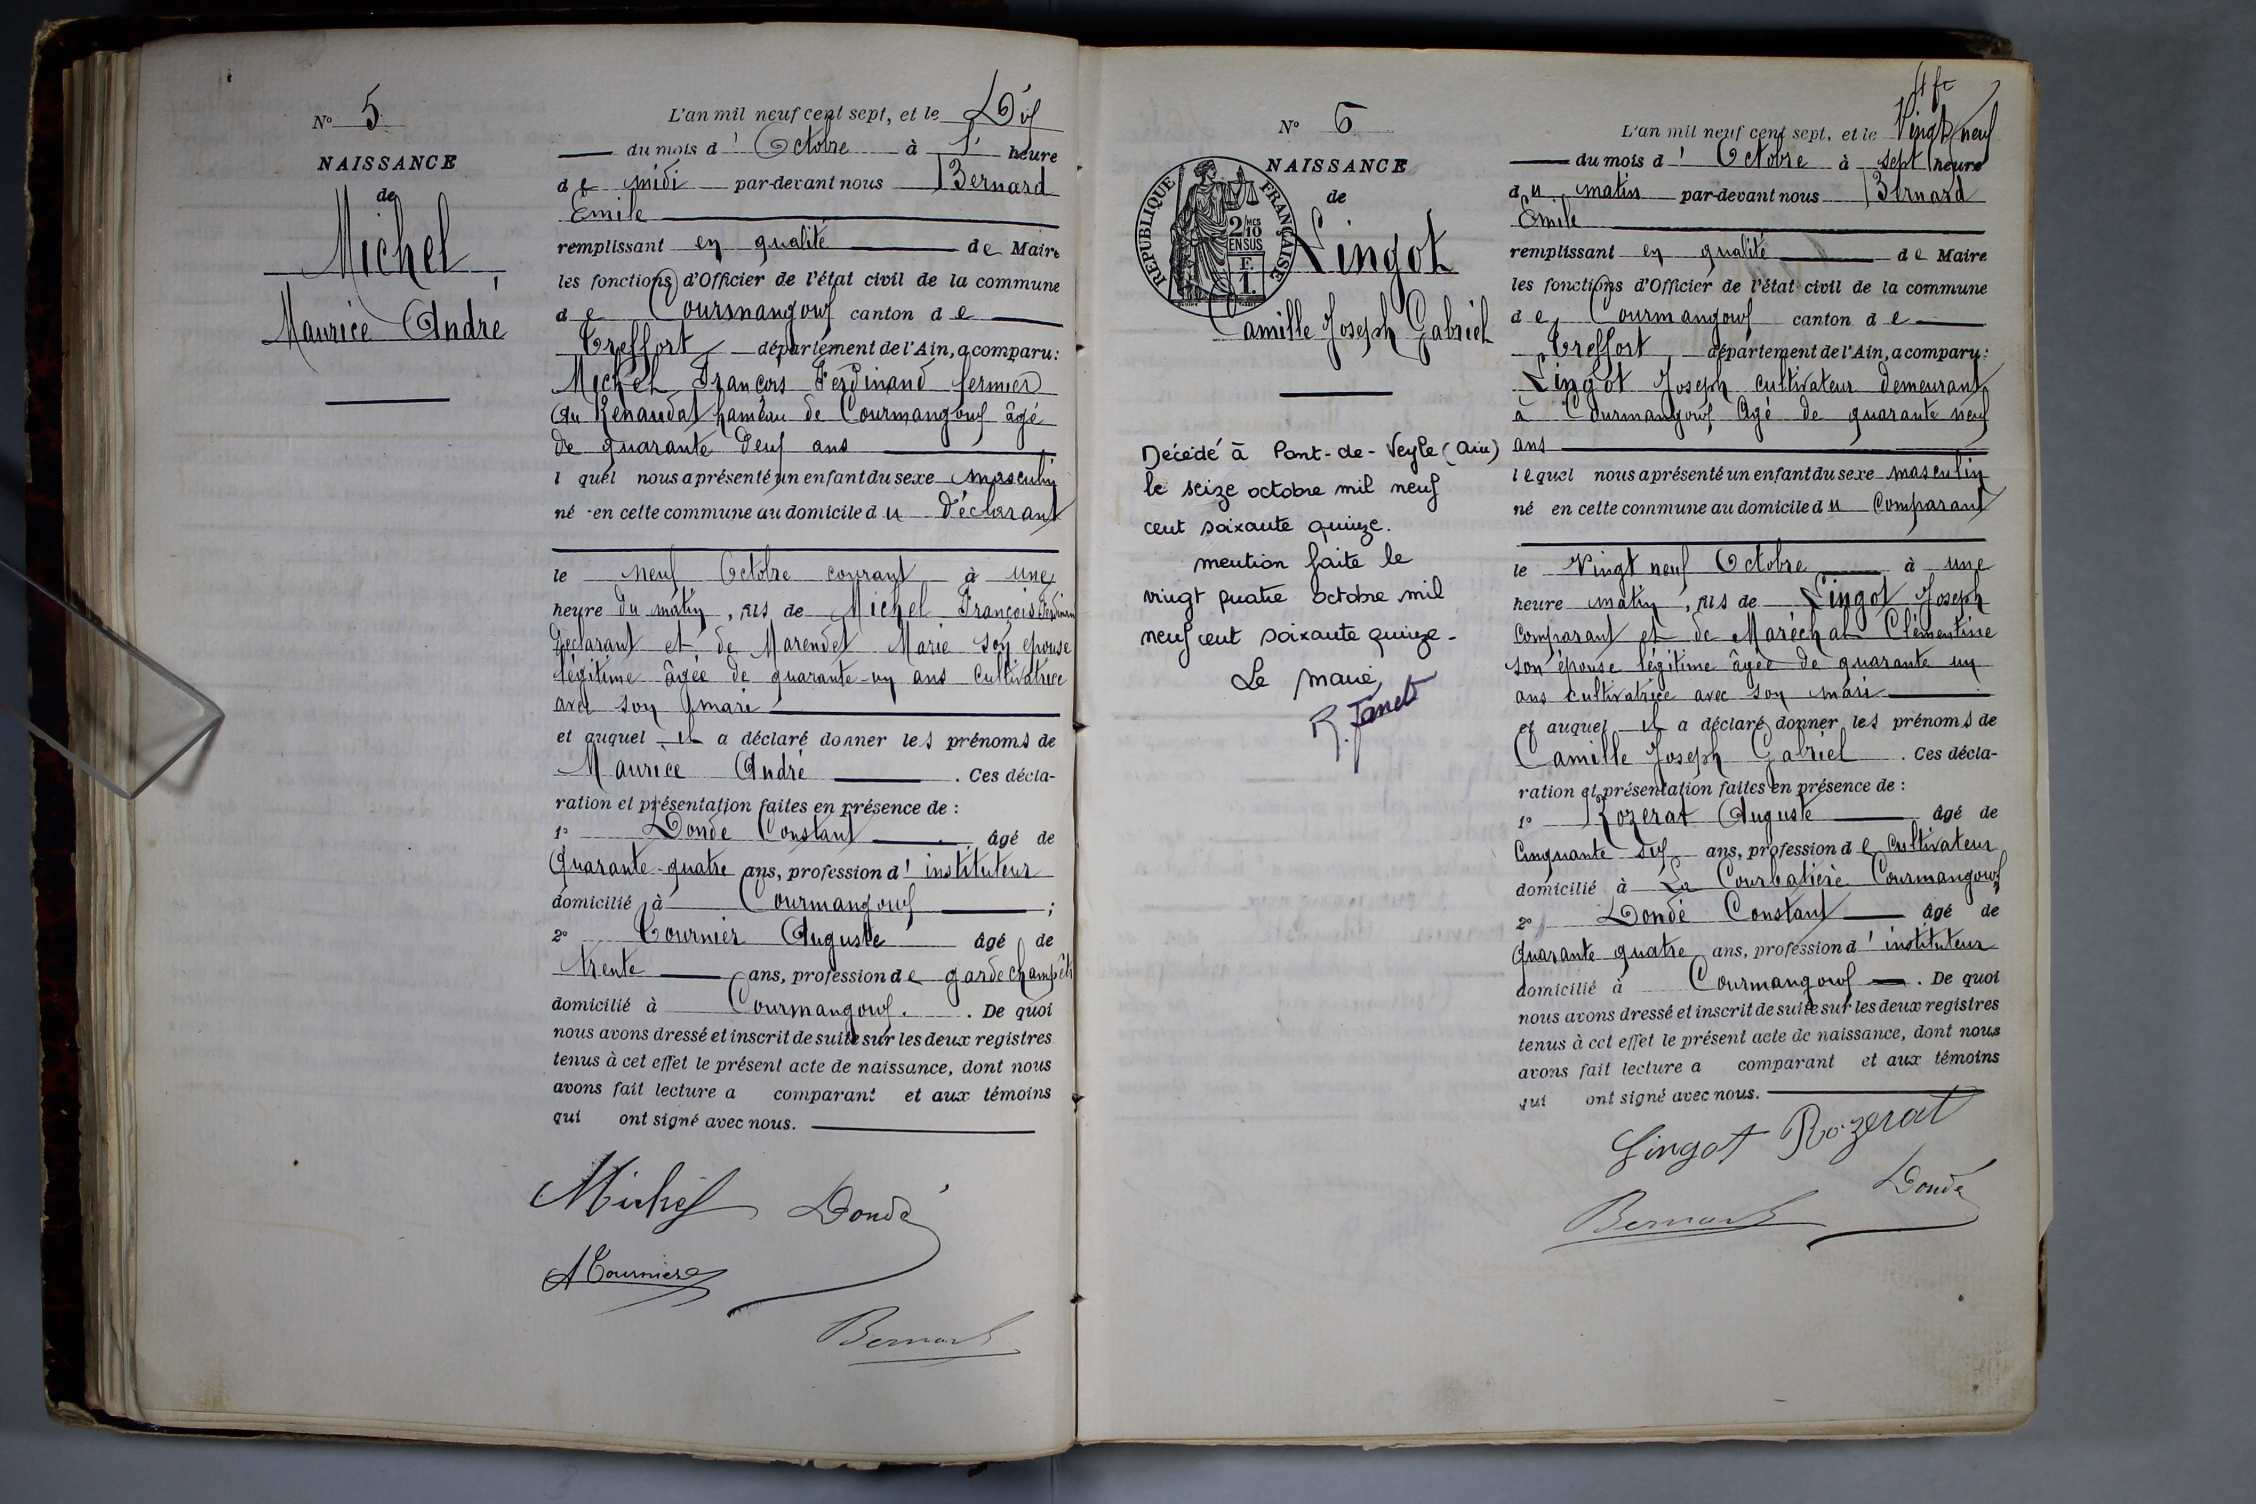 N° 5
NAISSANCE
de
Michel
Maurice André
L'an mil neuf cent sept, et le Dix
du mois d' Octobre à heure
de midi par-devant nous Bernard
Emile
remplissant en qualité de Maire
les fonctions d'Officier de l'état civil de la commune
de Courmangoux canton de
Treffort département de l'Ain, a comparu:
Michel François Ferdinand fermier
Au Renaudat hameau de Courmangoux âgé
de quarante deux ans
l quel nous a présenté un enfant du sexe masculin
né en cette commune au domicile du Déclarant
le neuf Octobre courant à une
heure du matin, fils de Michel François Ferdinand
Déclarant et de Marendet Marie son épouse
légitime âgée de quarante-un ans Cultivatrice
avec son mari
et auquel il a déclaré donner les prénoms de
Maurice André . Ces décla-
ration et présentation faites en présence de :
1° Dondé Constant âgé de
Quarante-quatre ans, profession d' instituteur
domicilié à Courmangoux ;
2° Tournier Auguste âgé de
trente ans, profession de garde champêtre
domicilié à Courmangoux. . De quoi
nous avons dressé et inscrit de suite sur les deux registres
tenus à cet effet le présent acte de naissance, dont nous
avons fait lecture a comparant et aux témoins
qui ont signé avec nous.
Michel Dondé
A Tournier
Bernard
N° 6
NAISSANCE
de
RÉPUBLIQUE FRANÇAISE
2/10 MES
EN SUS
F.
1.
Lingot
Camille Joseph Gabriel
Décédé à Pont-de-Veyle (Ain)
le seize octobre mil neuf
cent soixante quinze.
mention faite le
vingt quatre octobre mil
neuf cent soixante quinze.
Le maire,
R. Janet
L'an mil neuf cent sept, et le Vingt neuf
du mois d' Octobre à sept heure
du matin par-devant nous Bernard
Emile
remplissant en qualité de Maire
les fonctions d'Officier de l'état civil de la commune
de Courmangoux canton de
Treffort département de l'Ain, a comparu:
Lingot Joseph cultivateur demeurant
à Courmangoux Agé de quarante neuf
ans
lequel nous a présenté un enfant du sexe masculin
né en cette commune au domicile du Comparant
le Vingt neuf Octobre à une
heure matin, fils de Lingot Joseph
Comparant et de Maréchal Clémentine
son épouse légitime âgée de quarante un
ans cultivatrice avec son mari
et auquel il a déclaré donner les prénoms de
Camille Joseph Gabriel . Ces décla-
ration et présentation faites en présence de :
1° Rozerat Auguste âgé de
Cinquante six ans, profession de Cultivateur
domicilié à La Courbatière Courmangoux
2° Dondé Constant âgé de
Quarante quatre ans, profession d' instituteur
domicilié à Courmangoux . De quoi
nous avons dressé et inscrit de suite sur les deux registres
tenus à cet effet le présent acte de naissance, dont nous
avons fait lecture a comparant et aux témoins
qui ont signé avec nous.
Lingot Rozerat
Dondé
Bernard